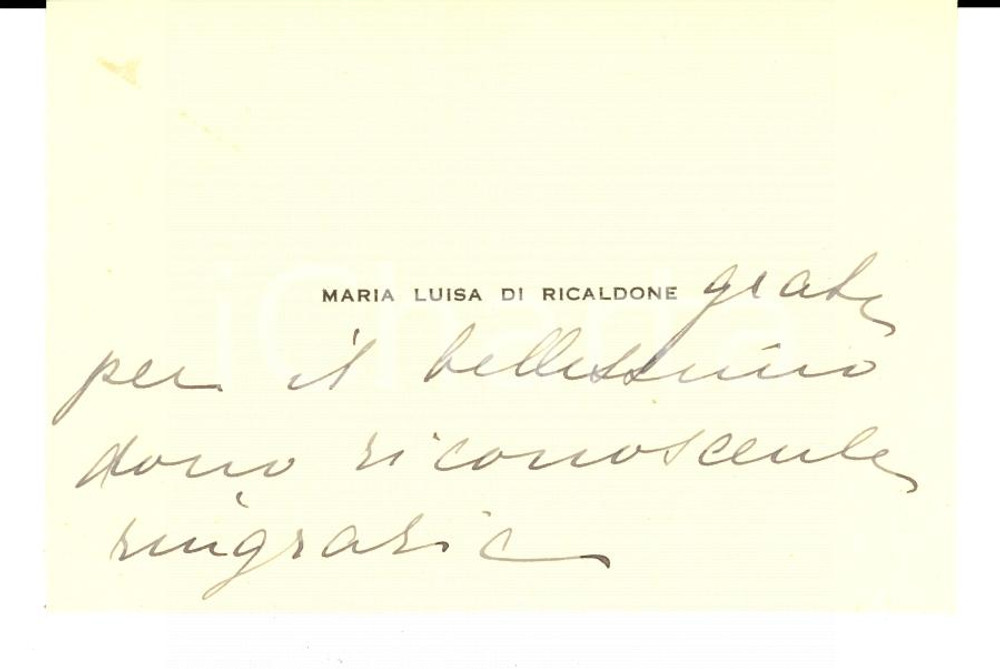 MARIA LUISA DI RICALDONE grata
per il bellissimo
dono riconoscente
ringrazia
iCharta